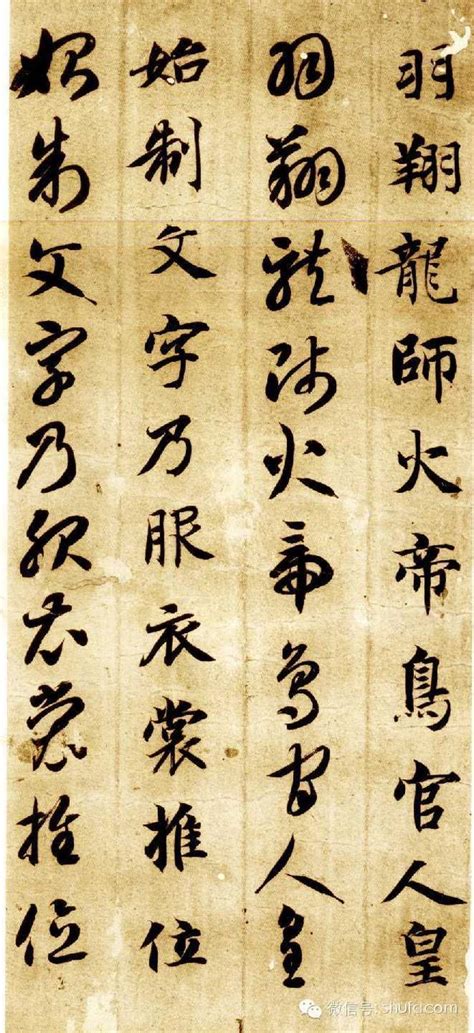 羽翔龍師火帝鳥官人皇
羽翔龍師火帝鳥官人皇
始制文字乃服衣裳推位
始制文字乃服衣裳推位
微信号: shufa.com